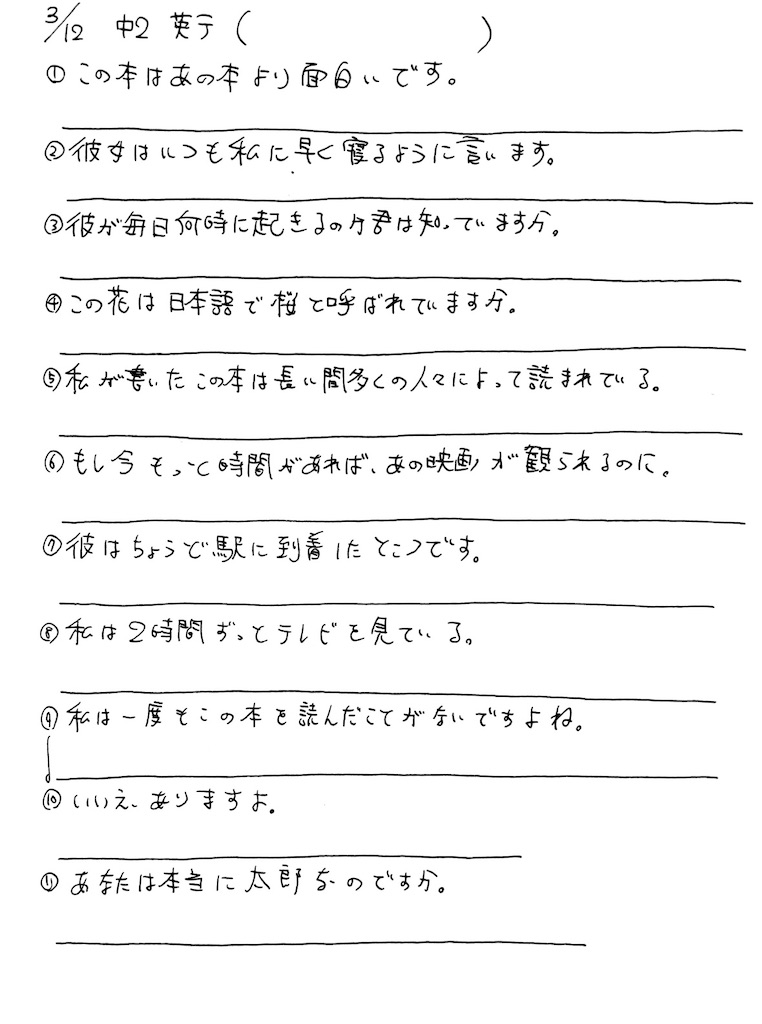 3/12 中2 英テ ( )
① この本はあの本より面白いです。
② 彼女はいつも私に早く寝るように言います。
③ 彼が毎日何時に起きるのか君は知っていますか。
④ この花は日本語で桜と呼ばれていますか。
⑤ 私が書いたこの本は長い間多くの人々によって読まれている。
⑥ もし今もっと時間があれば、あの映画が観られるのに。
⑦ 彼はちょうど駅に到着したところです。
⑧ 私は2時間ずっとテレビを見ている。
⑨ 私は一度もこの本を読んだことがないですよね。
⑩ いいえ、ありますよ。
⑪ あなたは本当に太郎なのですか。